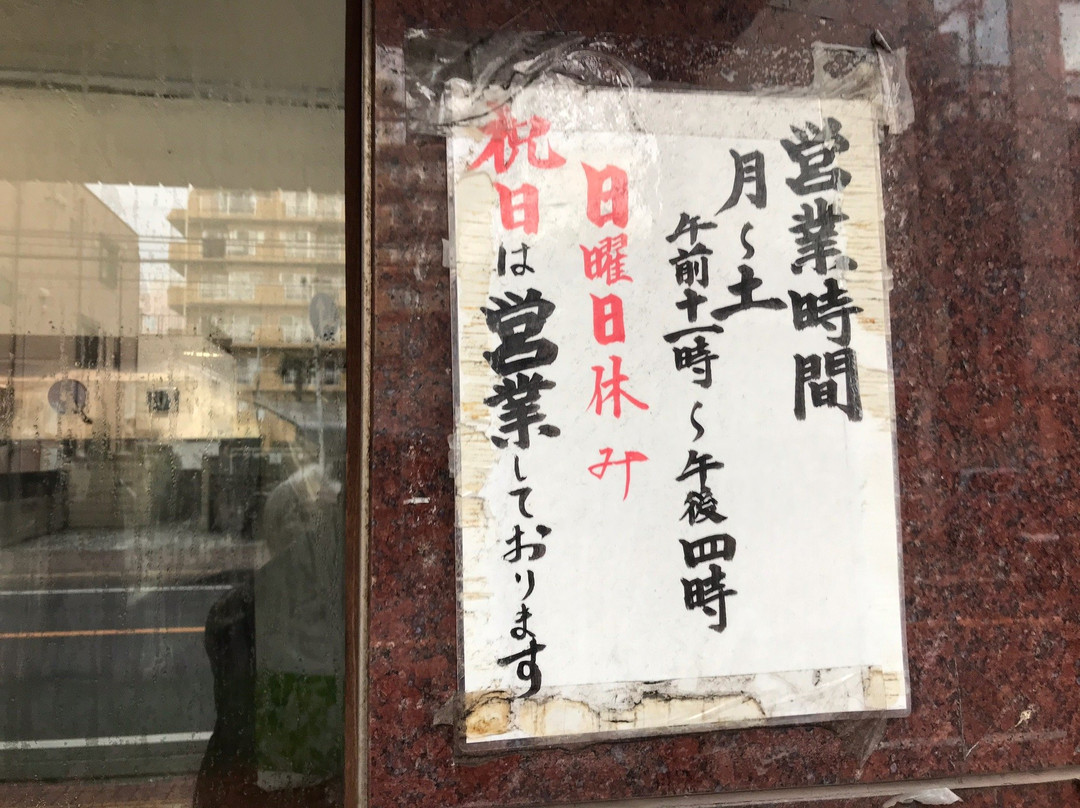 営業時間
月〜土
午前十一時〜午後四時
日曜日休み
祝日は営業しております